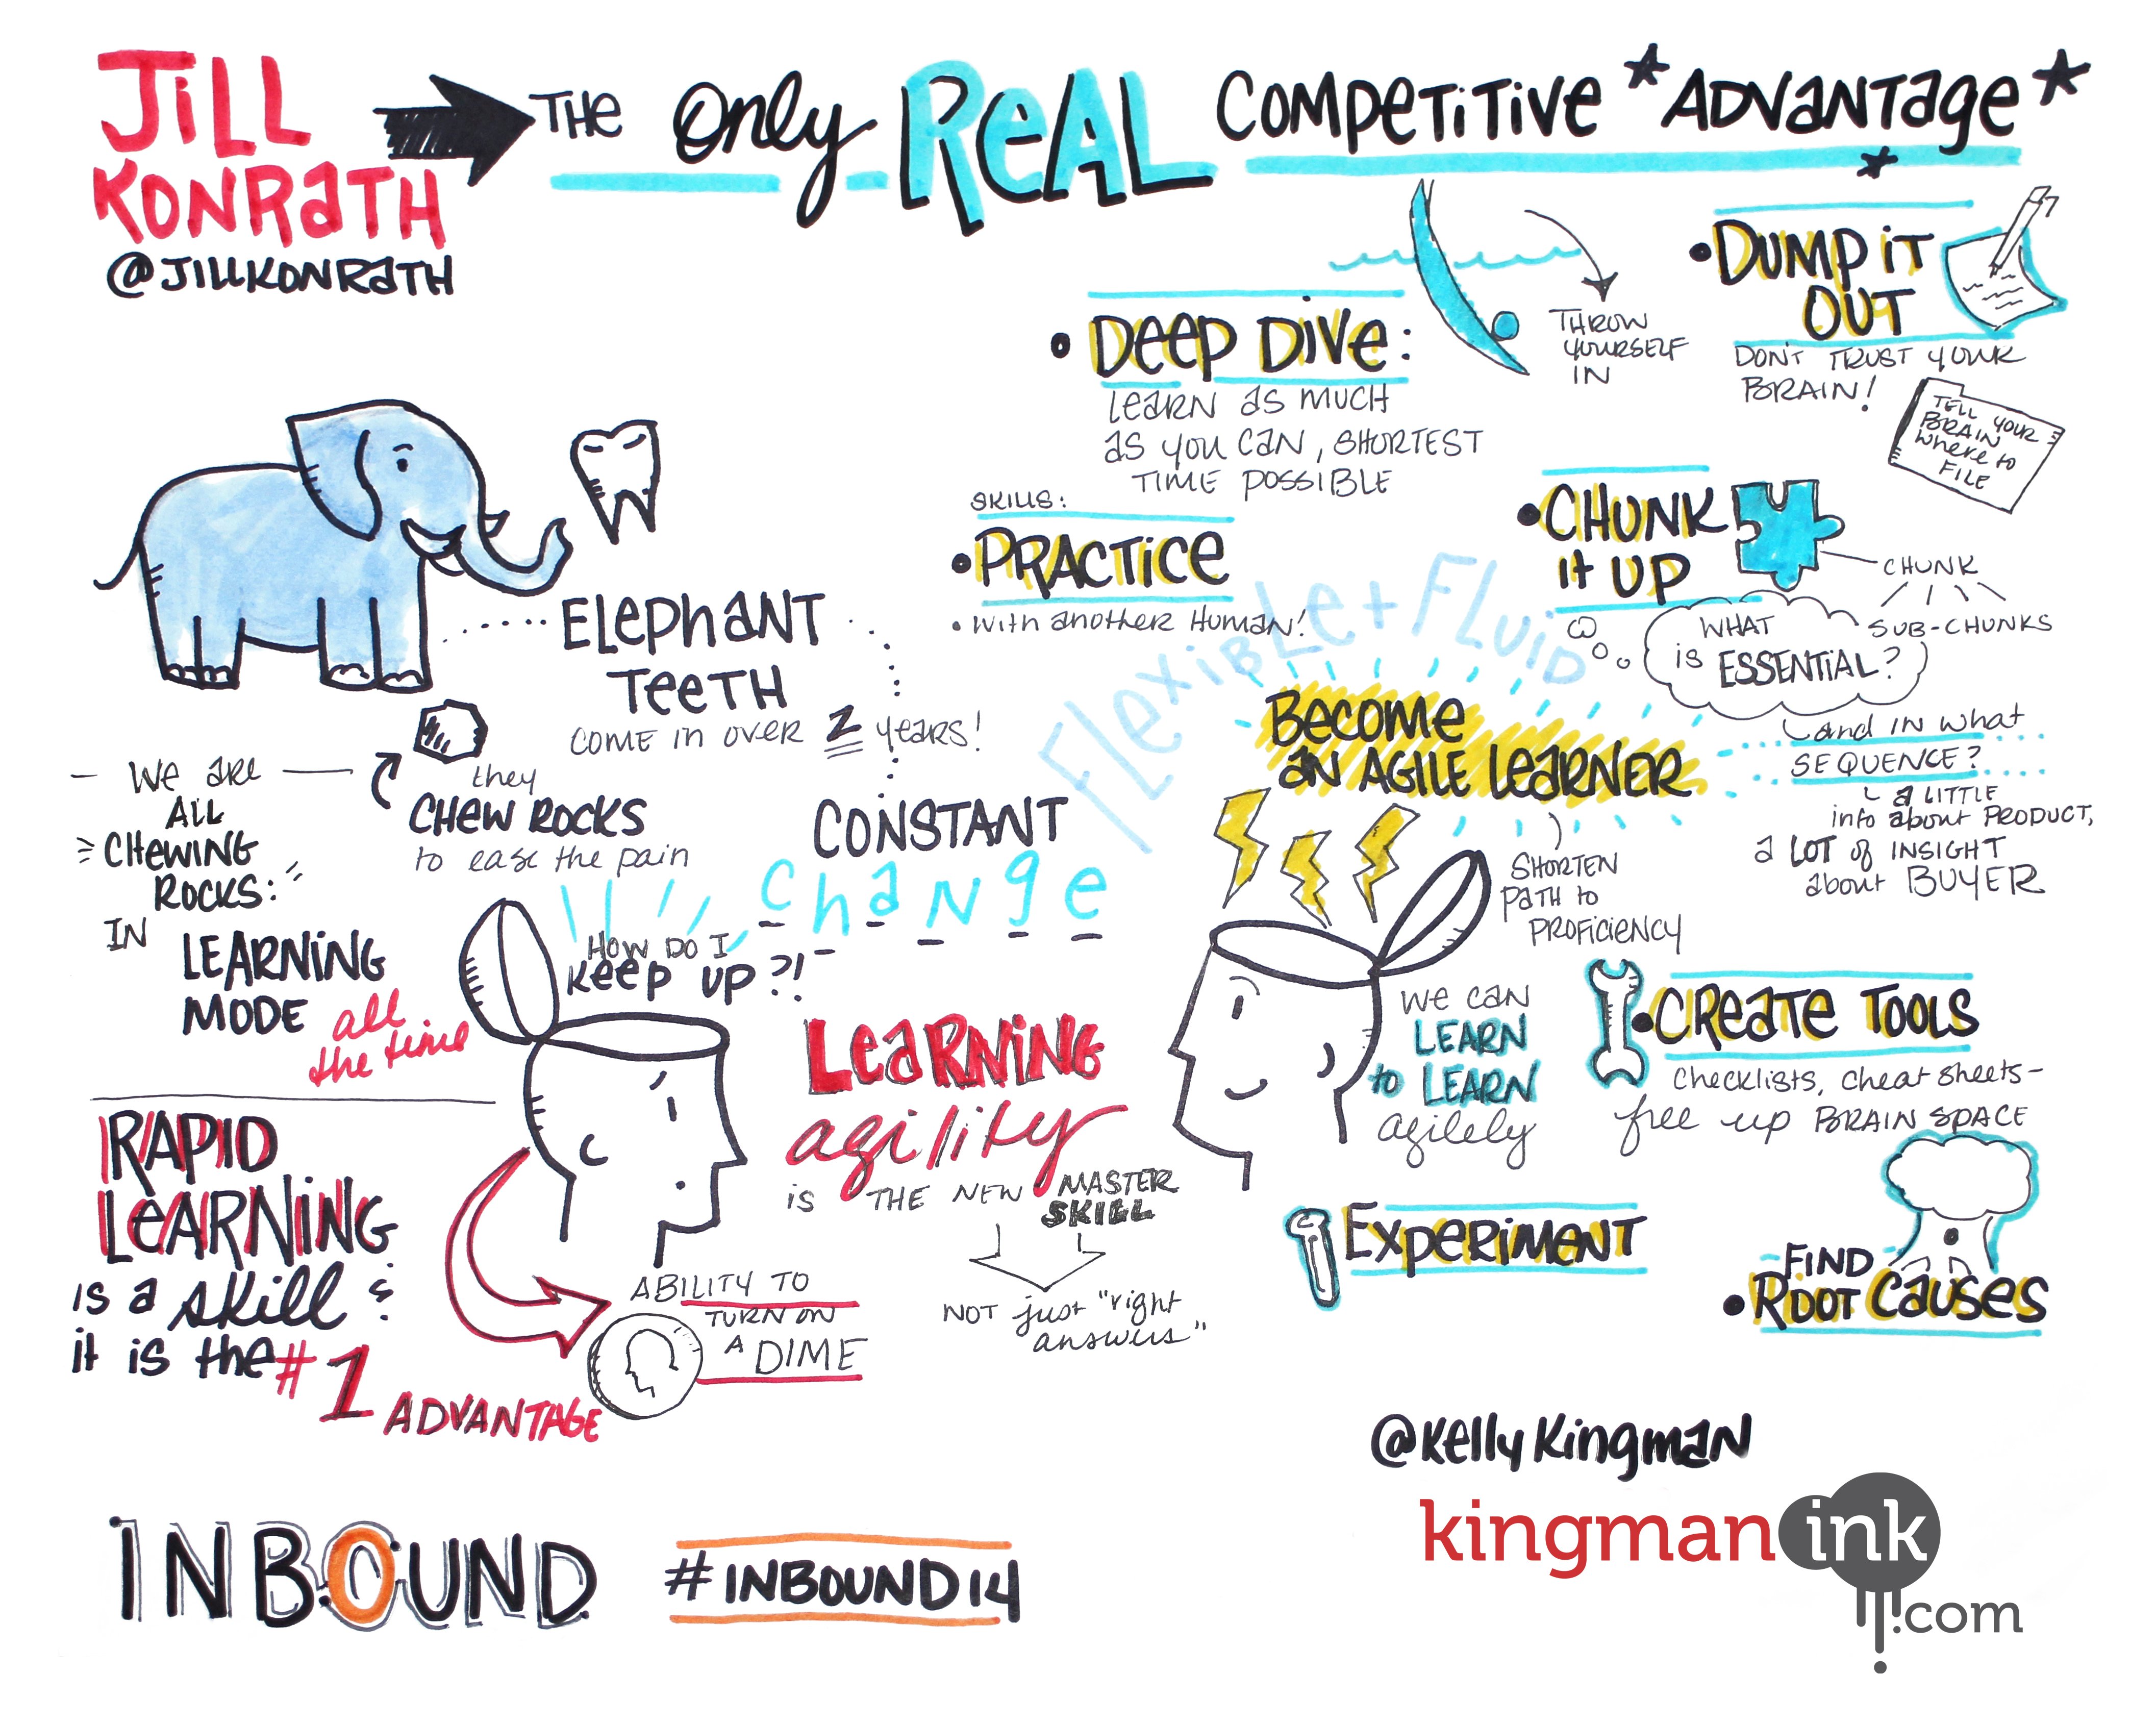 JiLL
KONRaTH
@JILLKONRATH
THE Only ReAL COMPeTiTiVe *ADVaNTage*
• DeeP DiVe:
LeaRN as MUCH
as you CaN, SHORTEST
TIME POSSIBLE
THROW
YOURSELF
IN
• DUMP iT
OUT
DON'T TRUST YOUR
BRAIN!
TELL YOUR
BRAIN
where to
FILE
SKILLS:
• PRACTiCe
• with another Human!
• CHUNK
it UP
CHUNK
SUB-CHUNKS
WHAT
is ESSENTiAL?
and IN what
SEQUENCE?
a LITTLE
info about PRODUCT,
a LOT of INSIGHT
about BUYER
FLexiBLe + FLuiD
Become
aN AGILE LeaRNeR
SHORTEN
PaTH to
PROFiciENCY
ELePHaNT
TeeTH
COME IN OVER 2 years!
they
CHEW ROCKS
to ease the pain
- We are -
ALL
CHEWING
ROCKS:
IN
LEARNiNG
MODE all
the time
CONSTANT
chaNge
HOW DO I
Keep UP?!
LeaRNiNG
agility
is THE NEW MASTER
SKILL
NOT just "right
answers"
RAPID
LeARNiNG
is a skill &
it is the #1
ADVANTAGE
ABILITY TO
TURN ON
A DIME
We CaN
LEARN
to LEARN
agilely
• CReaTe TOOLS
CHecklists, cheat sheets-
free up BRAIN SPACE
EXPeRiMeNT
FIND
• ROOT CaUSES
@KellyKingmaN
kingman ink
.com
INBOUND
#INBOUND14